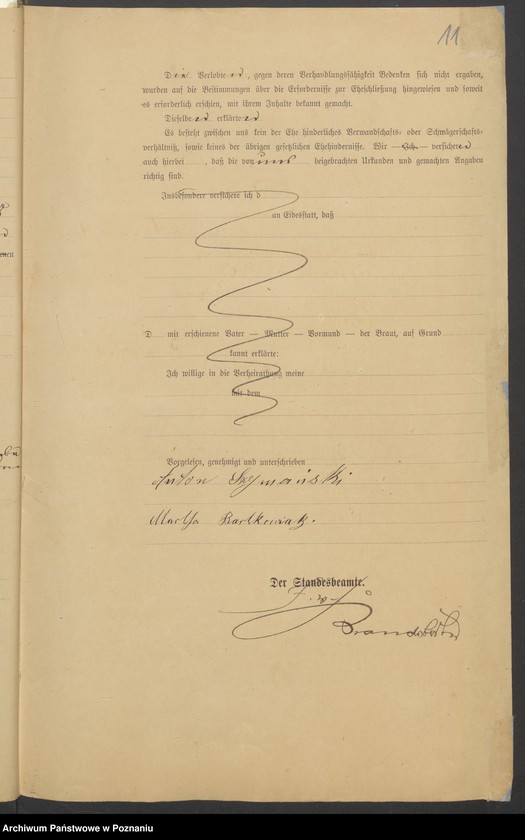 11
Die Verlobten, gegen deren Verhandlungsfähigkeit Bedenken sich nicht ergaben,
wurden auf die Bestimmungen über die Erfordernisse zur Eheschließung hingewiesen und soweit
es erforderlich erschien, mit ihrem Inhalte bekannt gemacht.
Dieselben erklärten
Es besteht zwischen uns kein der Ehe hinderliches Verwandschafts- oder Schwägerschafts-
verhältniß, sowie keines der übrigen gesetzlichen Ehehindernisse. Wir — Ich — versichern
auch hierbei, daß die von uns beigebrachten Urkunden und gemachten Angaben
richtig sind.
Insbesondere versichere ich d
an Eidesstatt, daß
D mit erschienene Vater — Mutter — Vormund — der Braut, auf Grund
kannt erklärte:
Ich willige in die Verheirathung meine
mit dem
Vorgelesen, genehmigt und unterschrieben
Anton Szymański
Martha Bartkowiak.
Der Standesbeamte.
Archiwum Państwowe w Poznaniu